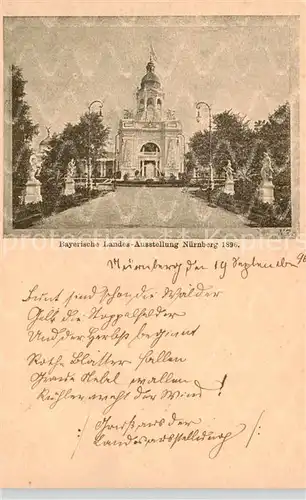 Bayerische Landes-Ausstellung Nürnberg 1896.
Nürnberg den 19 September 96
Bunt sind schon die Wälder
Gelb die Stoppelfelder
Und der Herbst beginnt
Rothe Blätter fallen
Graue Nebel wallen
Kühler weht der Wind!
/: Gruß aus der
Landesausstellung :/